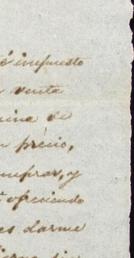 é impuesto
venta
mina de
précio,
comprar, y
ofreciendo
es darme